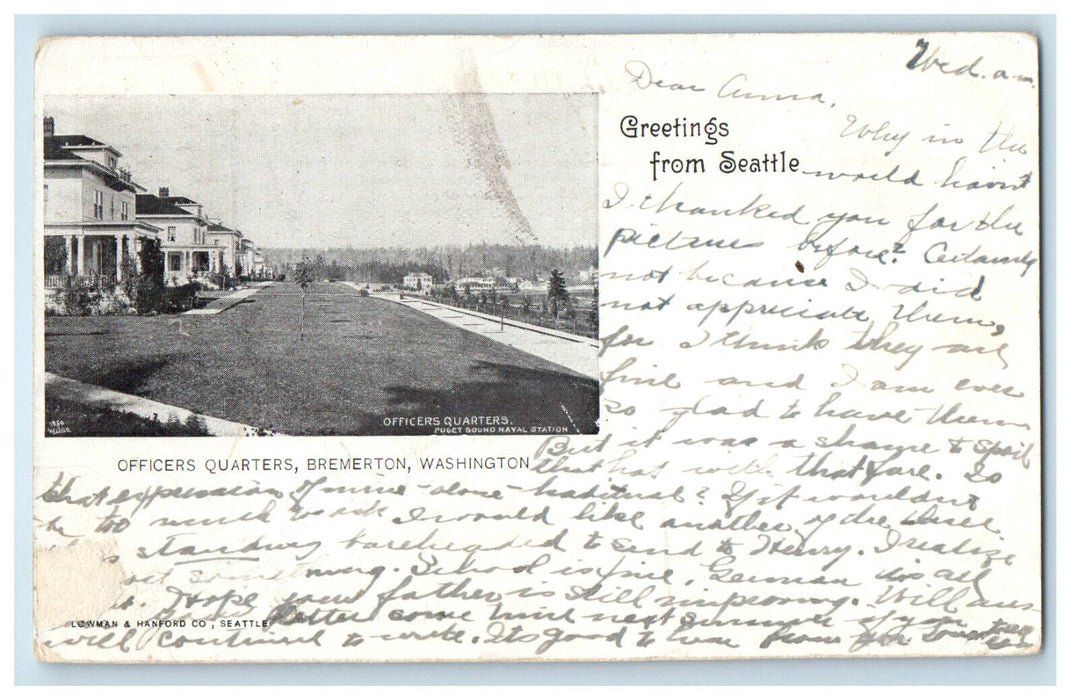 Wed. a.m.
Dear Anna,
Greetings
from Seattle
Why in the
world havn't
I thanked you for the
pictures before? Certainly
not because I did
not appreciate them,
for I think they are
fine and I am ever
so glad to have them
OFFICERS QUARTERS.
PUGET SOUND NAVAL STATION
OFFICERS QUARTERS, BREMERTON, WASHINGTON
But it was a shame to spoil
that hat with that face. So
that expression of mine habitual? If it wouldn't
be too much to ask I would like another of the three
standing bareheaded to send to Henry. I realize
School is fine, German is all
Hope your father is still improving. Will ans
LOWMAN & HANFORD CO., SEATTLE
letter some time next summer if you
will continue to write. Its good to hear from you